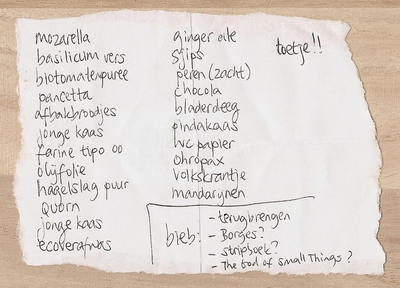 mozarella
basilicum vers
biotomatenpuree
pancetta
afbakbroodjes
jonge kaas
farine tipo 00
olijfolie
hagelslag puur
Quorn
jonge kaas
ecoverafwas
ginger ale
sjips
peren (zacht)
chocola
bladerdeeg
pindakaas
wc papier
ohropax
volkskrantje
mandarijnen
toetje!!
bieb:
- terugbrengen
- Borges?
- stripboek?
- The God of Small Things?